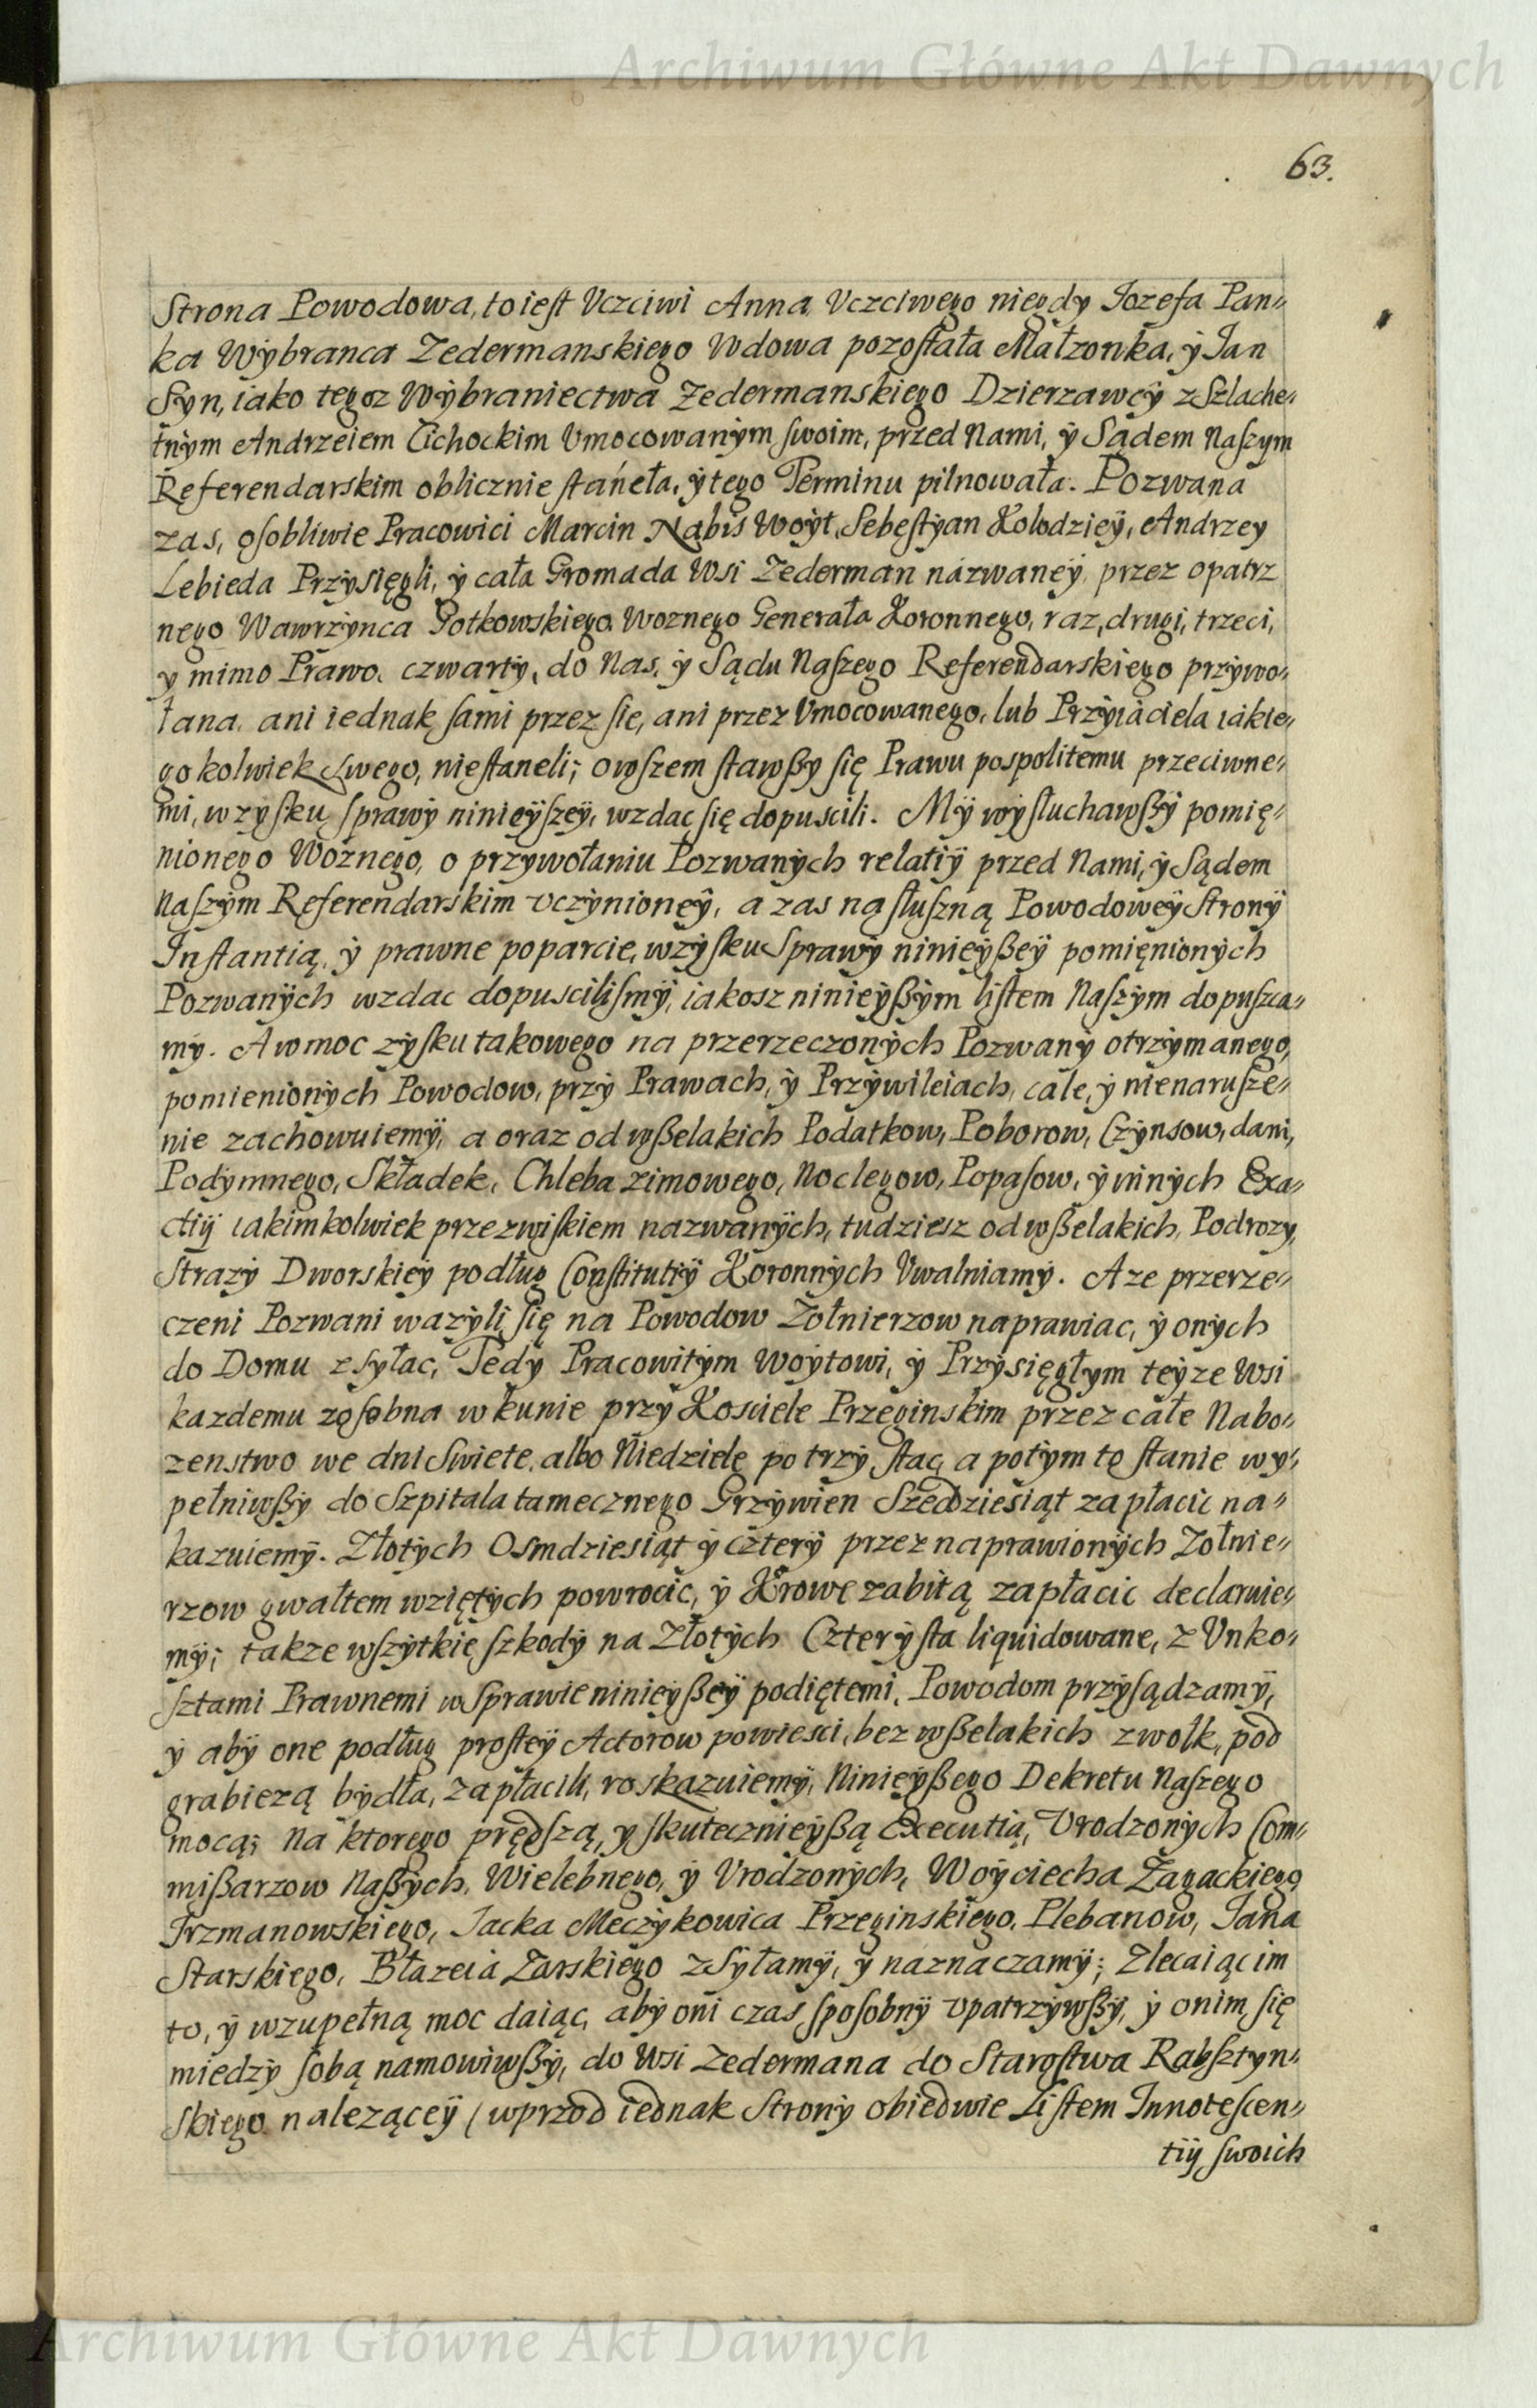 Archiwum Główne Akt Dawnych
63.
Strona Powodowa, to iest Vczciwi Anna Vczciwego niegdy Iozefa Pan⸗
ka Wybranca Zedermanskiego Wdowa pozostała Małzonka, ÿ Ian
Syn, iako tegoz Wÿbraniectwa Zedermanskiego Dzierzawcÿ z Szlache⸗
tnÿm Andrzeiem Cichockim Vmocowanÿm swoim, przed Nami, ÿ Sądem Naszym
Referendarskim oblicznie stáneła, ÿ tego Terminu pilnowała. Pozwana
zas, osobliwie Pracowici Marcin Nabis Woÿt, Sebestÿan Kolodzieÿ, Andrzey
Lebieda Przÿsięgli, ÿ cała Gromada Wsi Zederman názwaneÿ, przez opatrz
nego Wawrzÿnca Gotkowskiego Woznego Generała Koronnego, raz, drugi, trzeci,
y mimo Prawo, czwartÿ, do Nas, ÿ Sądu Naszego Referendarskiego przÿwo⸗
łana, ani iednak sami przez sie, ani przez Vmocowanego, lub Przÿiaciela iakie⸗
go kolwiek swego, niestaneli; owszem stawszy się Prawu pospolitemu przeciwne⸗
mi, w zysku sprawÿ ninieÿszeÿ, wzdac się dopuscili. Mÿ wÿsłuchawszÿ pomię⸗
nionego Woznego, o przywołaniu Pozwanÿch relatiÿ przed Nami, ÿ Sądem
Naszÿm Referendarskim vczÿnioneÿ, a zas na słuszną Powodoweÿ Stronÿ
Instantią, ÿ prawne poparcie, w zÿsku Sprawÿ ninieÿszeÿ pomięnionÿch
Pozwanÿch wzdac dopuscilismÿ, iakosz ninieÿszÿm listem Naszÿm dopuszca⸗
mÿ. A w moc zÿsku takowego na przerzeczonÿch Pozwanÿ otrzÿmanego,
pomienionÿch Powodow, przÿ Prawach, ÿ Przÿwileiach, cale, ÿ nienarusze⸗
nie zachowuiemÿ, a oraz od wszelakich Podatkow, Poborow, Czÿnsow, dani,
Podÿmnego, Składek, Chleba zimowego, Noclegow, Popasow, ÿ innÿch Exa⸗
ctiÿ iakimkolwiek przezwiskiem nazwanÿch, tudziesz od wszelakich, Podrozy,
Strazÿ Dworskieÿ podług Constitutiÿ Koronnÿch Vwalniamÿ. A ze przerze⸗
czeni Pozwani wazÿli się na Powodow Zołnierzow naprawiac, ÿ onÿch
do Domu zsyłac, Tedÿ Pracowitÿm Woÿtowi, ÿ Przÿsięgłym teÿze Wsi
kazdemu zosobna w kunie przy Kosciele Przeginskim przez całe Nabo⸗
zenstwo we dni Swiete, albo Niedziele po trzÿ stac, a potÿm to stanie wy⸗
pełniwszÿ do Szpitala tamecznego Grzÿwien Szedziesiąt zapłacic na⸗
kazuiemÿ. Złotÿch Osmdziesiąt ÿ czterÿ przez naprawionÿch Zołnie⸗
rzow gwałtem wziętÿch powrocic, ÿ Krowe zabitą zapłacic declaruie⸗
mÿ; takze wszÿtkie szkodÿ na Złotÿch Czterÿsta liquidowane, z Vnko⸗
sztami Prawnemi w Sprawie ninieÿszeÿ podiętemi, Powodom przÿsądzamÿ,
ÿ abÿ one podług prosteÿ Actorow powiesci, bez wszelakich zwołk, pod
grabiezą bÿdła, zapłacili, roskazuiemÿ, Ninieÿszego Dekretu Naszego
mocą; Na ktorego prędszą, ÿ skutecznieÿszą Executią, Vrodzonÿch Com⸗
missarzow Naszÿch, Wielebnego, ÿ Vrodzonÿch, Woÿciecha Zagackiego
Irzmanowskiego, Iacka Meczÿkowica Przeginskiego, Plebanow, Iana
Starskiego, Błazeia Zarskiego zsÿłamÿ, ÿ naznaczamÿ; Zlecaiąc im
to, ÿ wzupełną moc daiąc, abÿ oni czas sposobnÿ vpatrzÿwszÿ, ÿ onim się
miedzÿ sobą namowiwszÿ, do Wsi Zedermana do Starostwa Rabsztyn⸗
skiego naleząceÿ (wprzod iednak Stronÿ obiedwie Listem Innotescen⸗
tiÿ swoich
Archiwum Główne Akt Dawnych